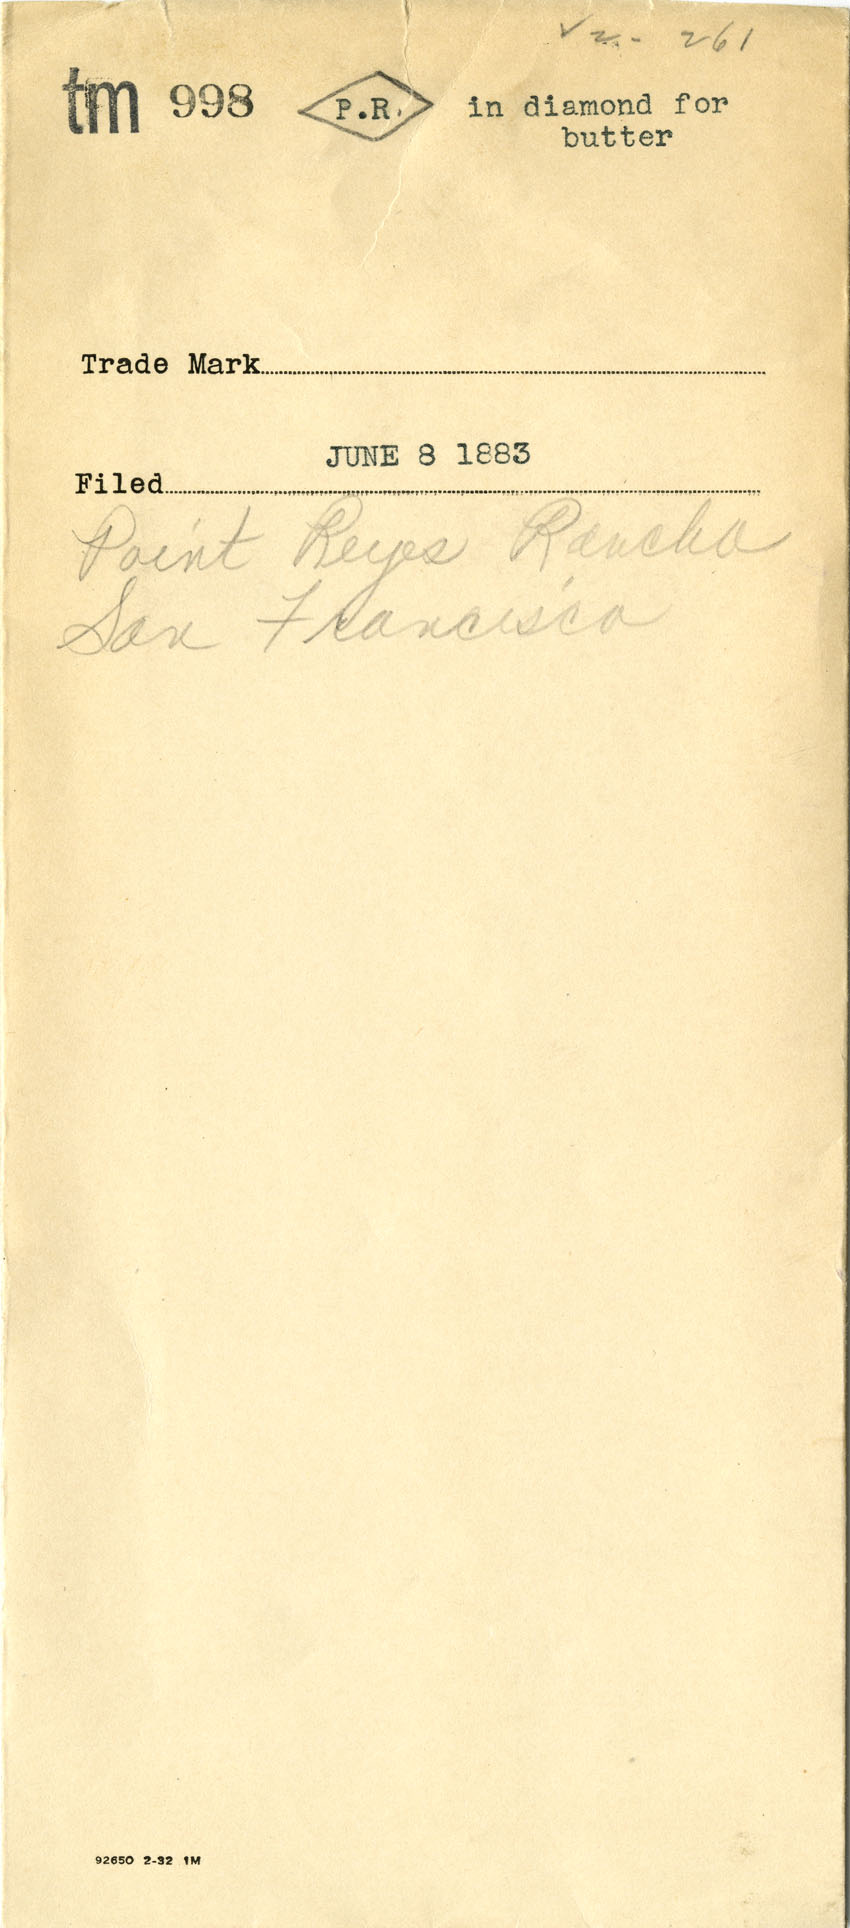 V2- 261
tm 998 P.R. in diamond for
butter
Trade Mark
JUNE 8 1883
Filed
Point Reyes Rancho
San Francisco
92650 2-32 1M